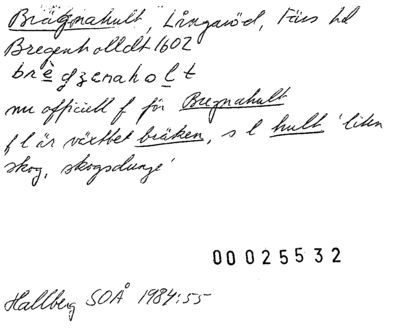 Brägnahult, Långaröd, Färs hd
Bregenholldt 1602
brègzenaholt
nu officiell f för Bregnahult
f l är växtbet bräken, s l hult 'liten
skog, skogsdunge'
00025532
Hallberg SOÅ 1984:55